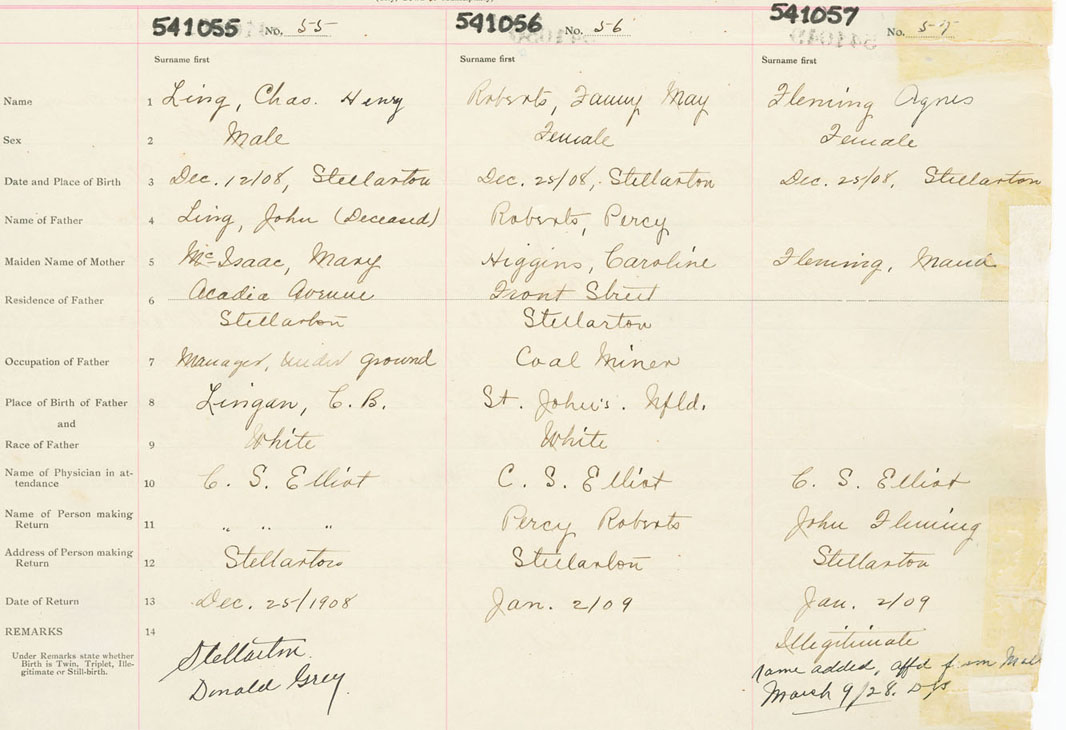 541055 No. 55 541056 No. 56 541057 No. 57
Surname first Surname first Surname first
Name 1 Ling, Chas. Henry Roberts, Fanny May Fleming Agnes
Sex 2 Male Female Female
Date and Place of Birth 3 Dec. 12/08, Stellarton Dec. 25/08, Stellarton Dec. 25/08, Stellarton
Name of Father 4 Ling, John (Deceased) Roberts, Percy
Maiden Name of Mother 5 McIsaac, Mary Higgins, Caroline Fleming, Maud
Residence of Father 6 Acadia Avenue Front Street
Stellarton Stellarton
Occupation of Father 7 Manager, under ground Coal Miner
Place of Birth of Father 8 Lingan, C. B. St. John's. Nfld.
and
Race of Father 9 White White
Name of Physician in at-
tendance 10 C. S. Elliot C. S. Elliot C. S. Elliot
Name of Person making
Return 11 " " " Percy Roberts John Fleming
Address of Person making
Return 12 Stellarton Stellarton Stellarton
Date of Return 13 Dec. 25/1908 Jan. 2/09 Jan. 2/09
REMARKS 14 Illegitimate
Under Remarks state whether
Birth is Twin, Triplet, Ille-
gitimate or Still-birth.
Stellarton. name added, affd
Donald Grey March 9/28.